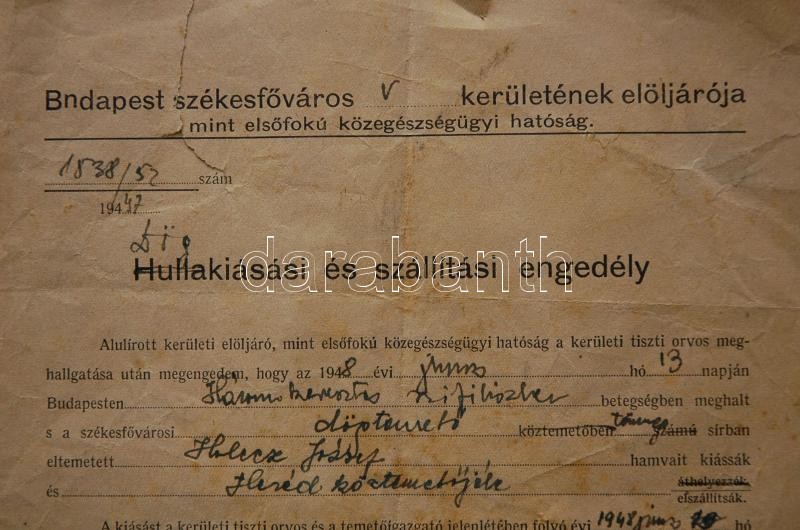 Bndapest székesfőváros V kerületének elöljárója
mint elsőfokú közegészségügyi hatóság.
1838/52 szám
194 47
Dög
Hullakiásási és szállítási engedély
darabanth
Alulírott kerületi elöljáró, mint elsőfokú közegészségügyi hatóság a kerületi tiszti orvos meg-
hallgatása után megengedem, hogy az 1948 évi június hó 13 napján
Budapesten betegségben meghalt
s a székesfővárosi döptemető köztemetőben tömeg számú sírban
eltemetett Holecz József hamvait kiássák
és Heréd köztemetőjébe áthelyezzék.
elszállítsák.
A kiásást a kerületi tiszti orvos és a temetőigazgató jelenlétében folyó évi 1948 június hó